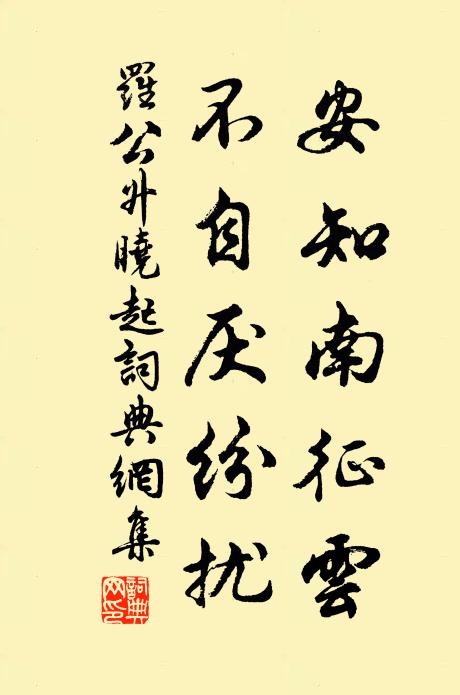 安知南征雲
不自厌紛扰
羅公升曉起詞典網集
詞典網印